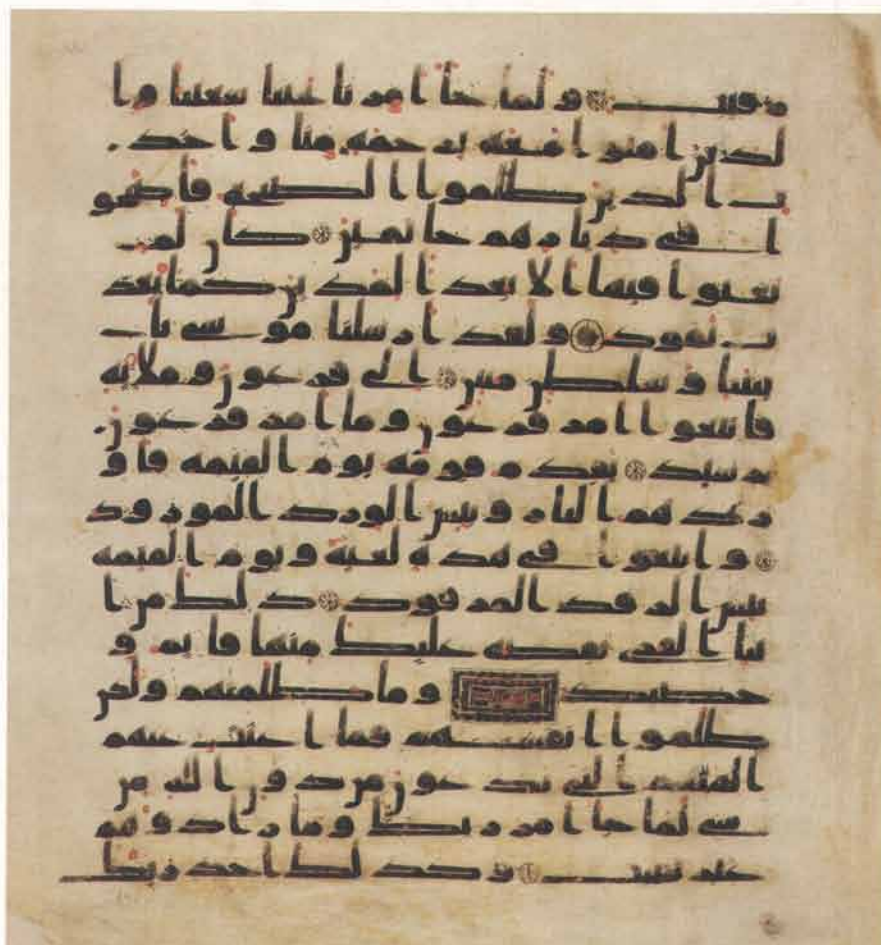 رقيب ولما جا امرنا نجينا شعيبا وا
لذين امنوا معه برحمه منا واخذ
ت الذين ظلموا الصيحه فاصبحو
ا في ديارهم جاثمين كان لم
يغنوا فيها الا بعدا لمدين كما بعد
ت ثمود ولقد ارسلنا موسى باي
تنا وسلطن مبين الى فرعون وملايه
فاتبعوا امر فرعون وما امر فرعون
برشيد يقدم قومه يوم القيمه فاو
ردهم النار وبيس الورد المورود
واتبعوا في هذه لعنه ويوم القيمه
بيس الرفد المرفود ذلك من ا
نبا القرى نقصه عليك منها قايم و
حصيد وما ظلمنهم ولكن
ظلموا انفسهم فما اغنت عنهم
الهتهم التي يدعون من دون الله من
شي لما جا امر ربك وما زادوهم
غير تتبيب وكذلك اخذ ربك